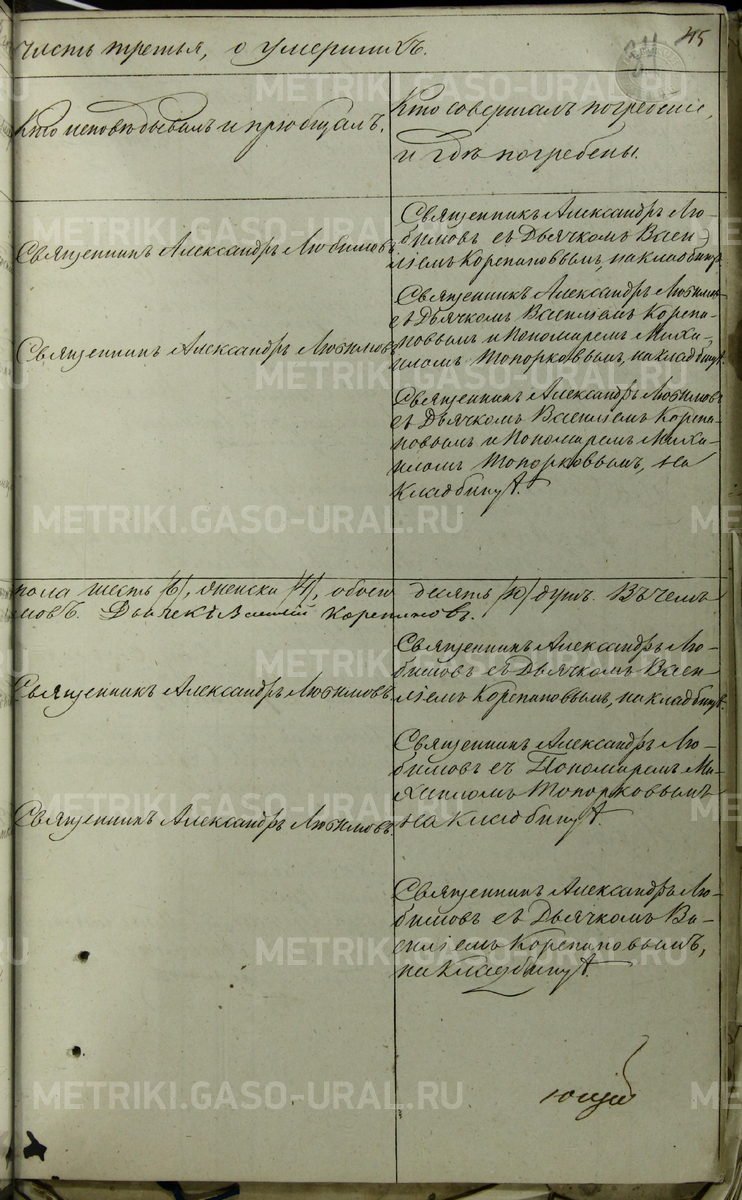 45
34
Часть третья, о умершихъ.
Кто исповѣдывалъ и пріобщалъ.
Кто совершалъ погребеніе,
и гдѣ погребены.
Священникъ Александръ Любимовъ
Священникъ Александръ Лю-
бимовъ съ Дьячкомъ Васи-
ліемъ Корепановымъ, на кладбищѣ.
Священникъ Александръ Любимовъ
Священникъ Александръ Любимовъ
съ Дьячкомъ Василіемъ Корепа-
новымъ и Пономаремъ Миха-
иломъ Топорковымъ, на кладбищѣ.
Священникъ Александръ Любимовъ
съ Дьячкомъ Василіемъ Корепа-
новымъ и Пономаремъ Миха-
иломъ Топорковымъ, на
кладбищѣ.
пола шесть /6/, женска /4/, обоего десять /10/ душъ. Въ чемъ
мовъ. Дьячекъ Василій Корепановъ.
Священникъ Александръ Любимовъ
Священникъ Александръ Лю-
бимовъ съ Дьячкомъ Васи-
ліемъ Корепановымъ, на кладбищѣ.
Священникъ Александръ Любимовъ
Священникъ Александръ Лю-
бимовъ съ Пономаремъ Ми-
хаиломъ Топорковымъ
на кладбищѣ.
Священникъ Александръ Лю-
бимовъ съ Дьячкомъ Ва-
силіемъ Корепановымъ,
на кладбищѣ.
ющій
METRIKI.GASO-URAL.RU